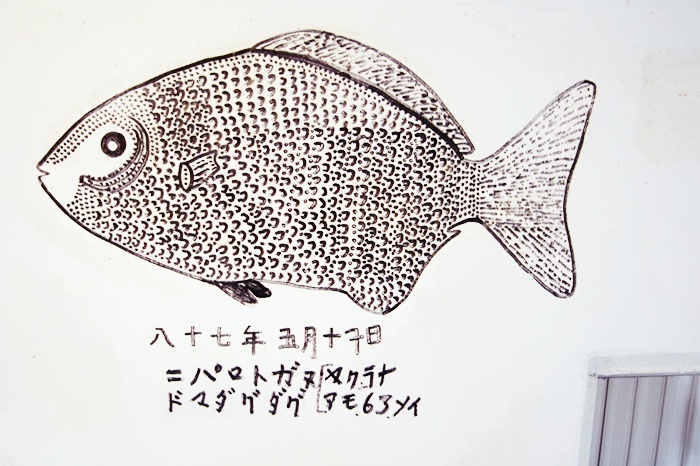 八十七年 五月十 日
ニパロトガヌ クラナ
ドマダグダグ アモ.63.ソイ